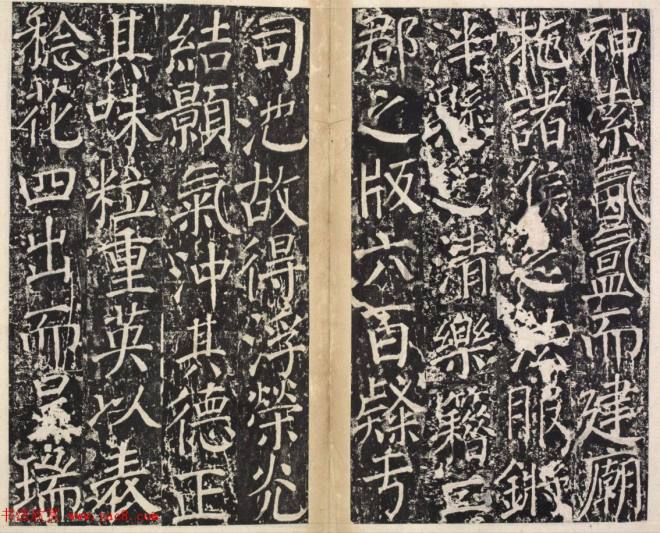 神索氤氳而建廟
拖諸侯之法服鏘
泮縣之清樂籍三
郡之版六百
司池故得浮榮光
結顥氣沖其德正
其味粒重英以表
稔花四出而瑞
书法欣赏 www.yac8.com